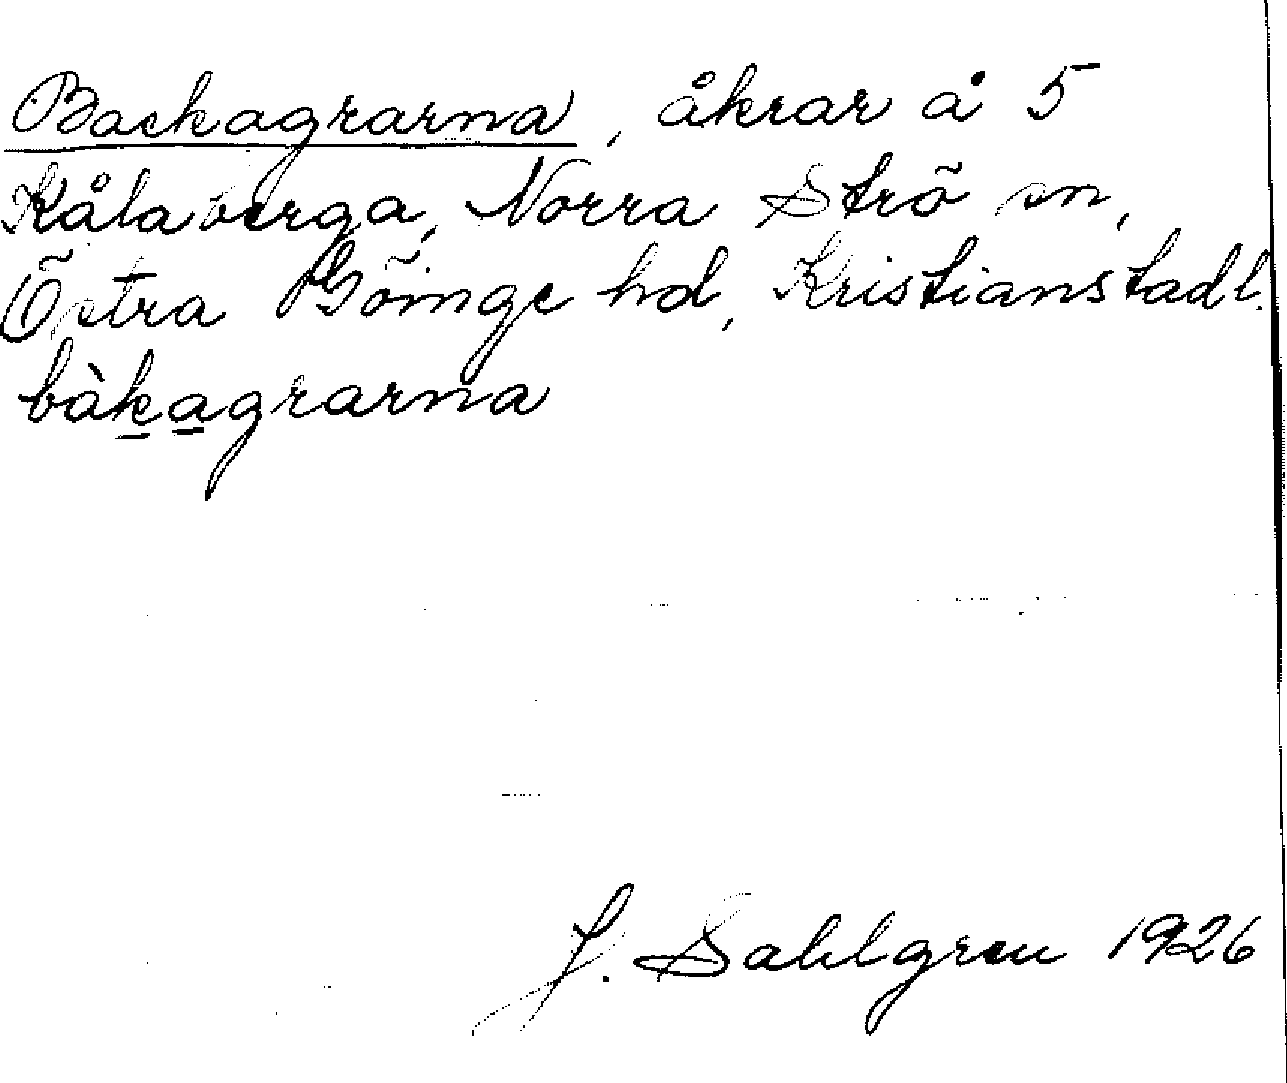 Backagrarna, åkrar å 5
Kålaberga, Norra Strö sn,
Östra Göinge hd, Kristianstad l.
bàkagrarna
J. Sahlgren 1926